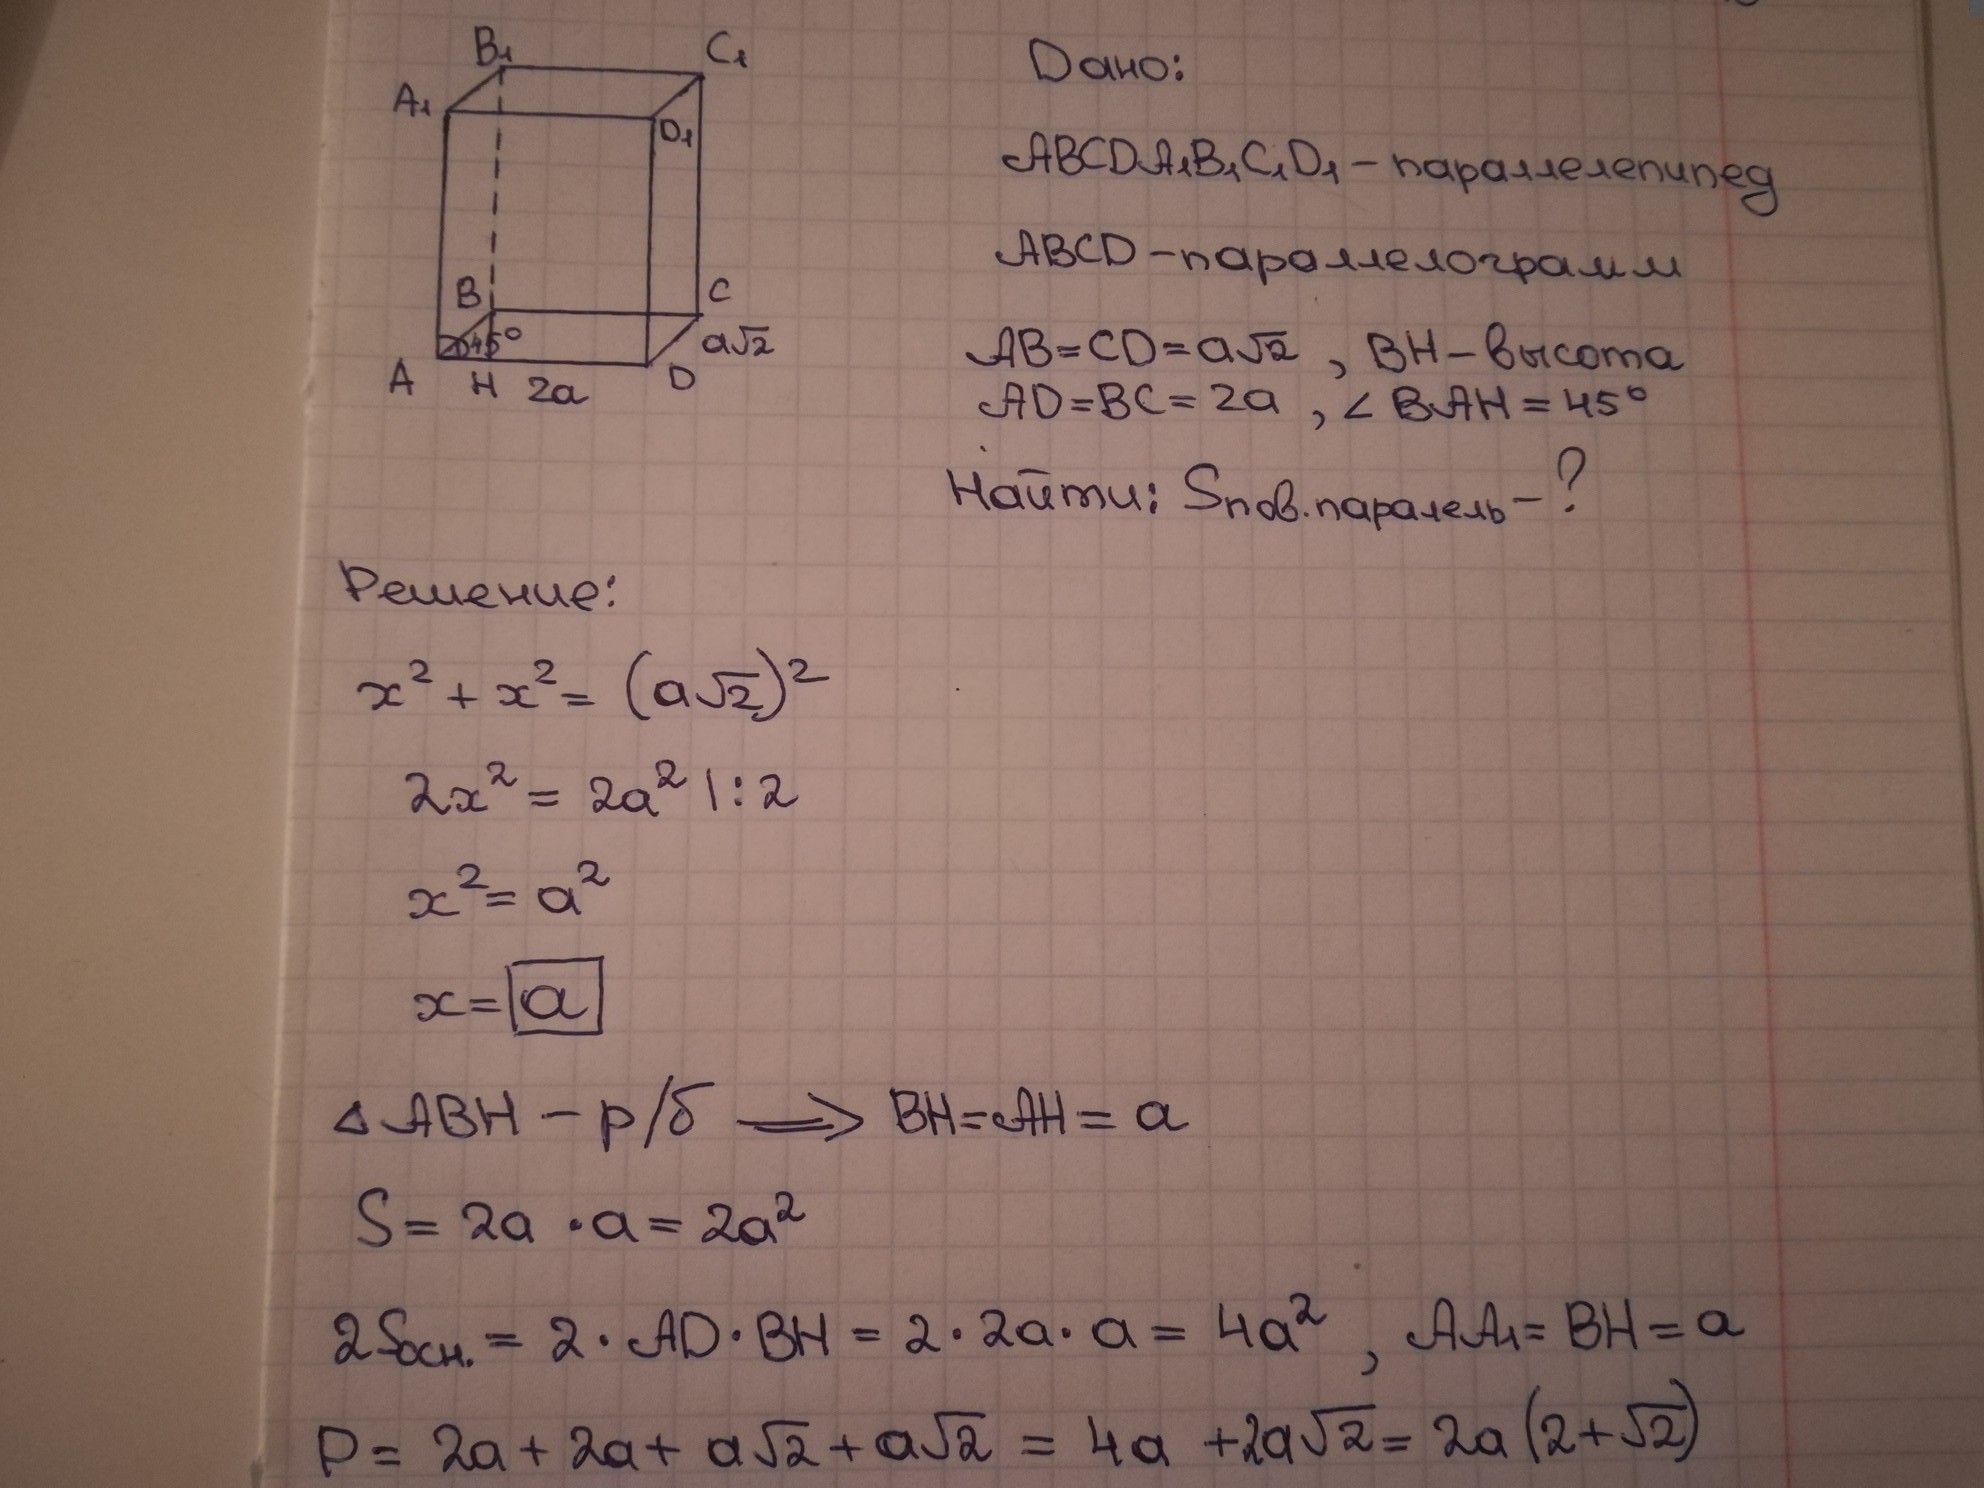 B₁ C₁
A₁ D₁
B C
45° a√2
A H 2a D
Дано:
ABCDA₁B₁C₁D₁ – параллелепипед
ABCD – параллелограмм
AB=CD=a√2 , BH – высота
AD=BC=2a , ∠BAH=45°
Найти: Sпов.паралель – ?
Решение:
x² + x² = (a√2)²
2x² = 2a² |:2
x² = a²
x = a
△ABH – р/б ⟹ BH=AH=a
S = 2a · a = 2a²
2Sосн. = 2 · AD · BH = 2 · 2a · a = 4a² , AA₁ = BH = a
P = 2a + 2a + a√2 + a√2 = 4a + 2a√2 = 2a(2+√2)